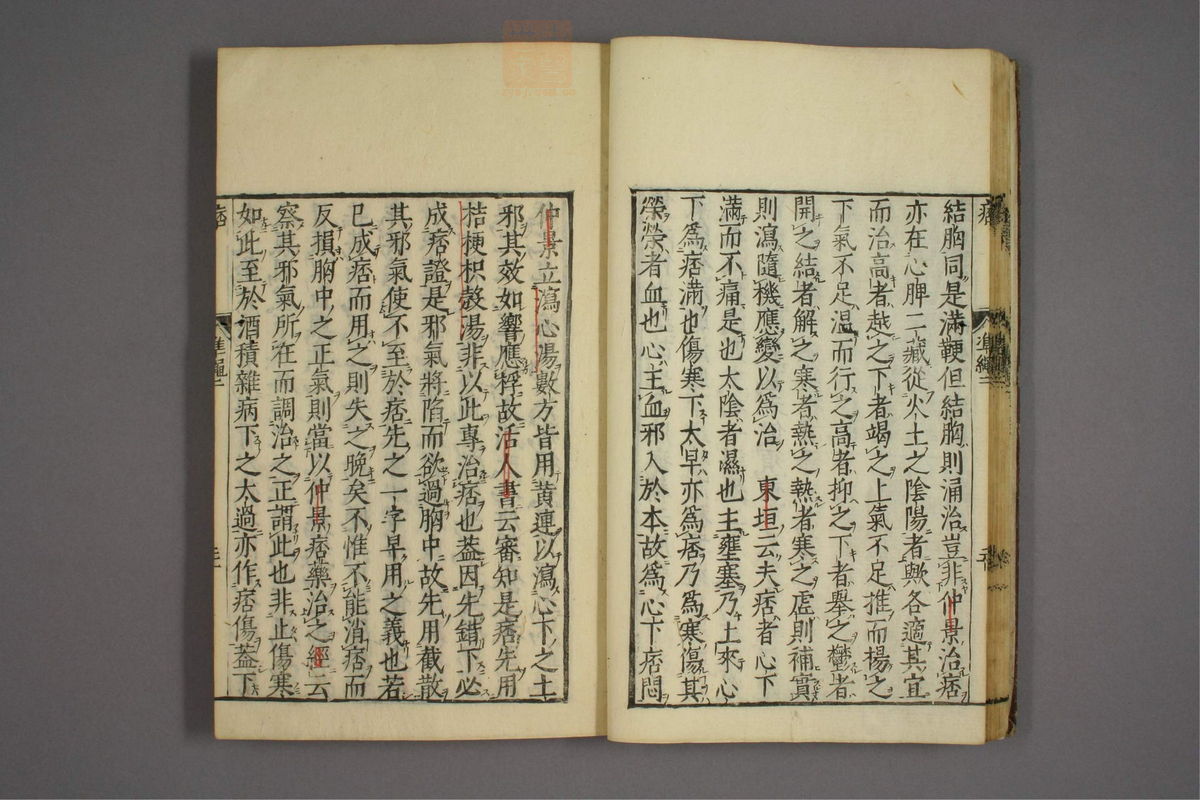 結胸同是滿鞕但結胸則涌治豈非仲景治痞
亦在心脾二藏從火土之陰陽者歟各適其宜
而治高者越之下者竭之上氣不足推而楊之
下氣不足溫而行之高者抑之下者舉之鬱者
開之結者解之寒者熱之熱者寒之虛則補實
則瀉隨機應變以爲治 東垣云夫痞者心下
滿而不痛是也太陰者濕也主壅塞乃土來心
下爲痞滿也傷寒下太早亦爲痞乃爲寒傷其
榮榮者血也心主血邪入於本故爲心下痞悶
仲景立瀉心湯數方皆用黄連以瀉心下之土
邪其效如響應桴故活人書云審知是痞先用
桔梗枳殻湯非以此專治痞也葢因先錯下必
成痞證是邪氣將陷而欲過胸中故先用截散
其邪氣使不至於痞先之一字早用之義也若
已成痞而用之則失之晚矣不惟不能消痞而
反損胸中之正氣則當以仲景痞藥治之經云
察其邪氣所在而調治之正謂此也非止傷寒
如此至於酒積雜病下之太過亦作痞傷葢下
準繩二